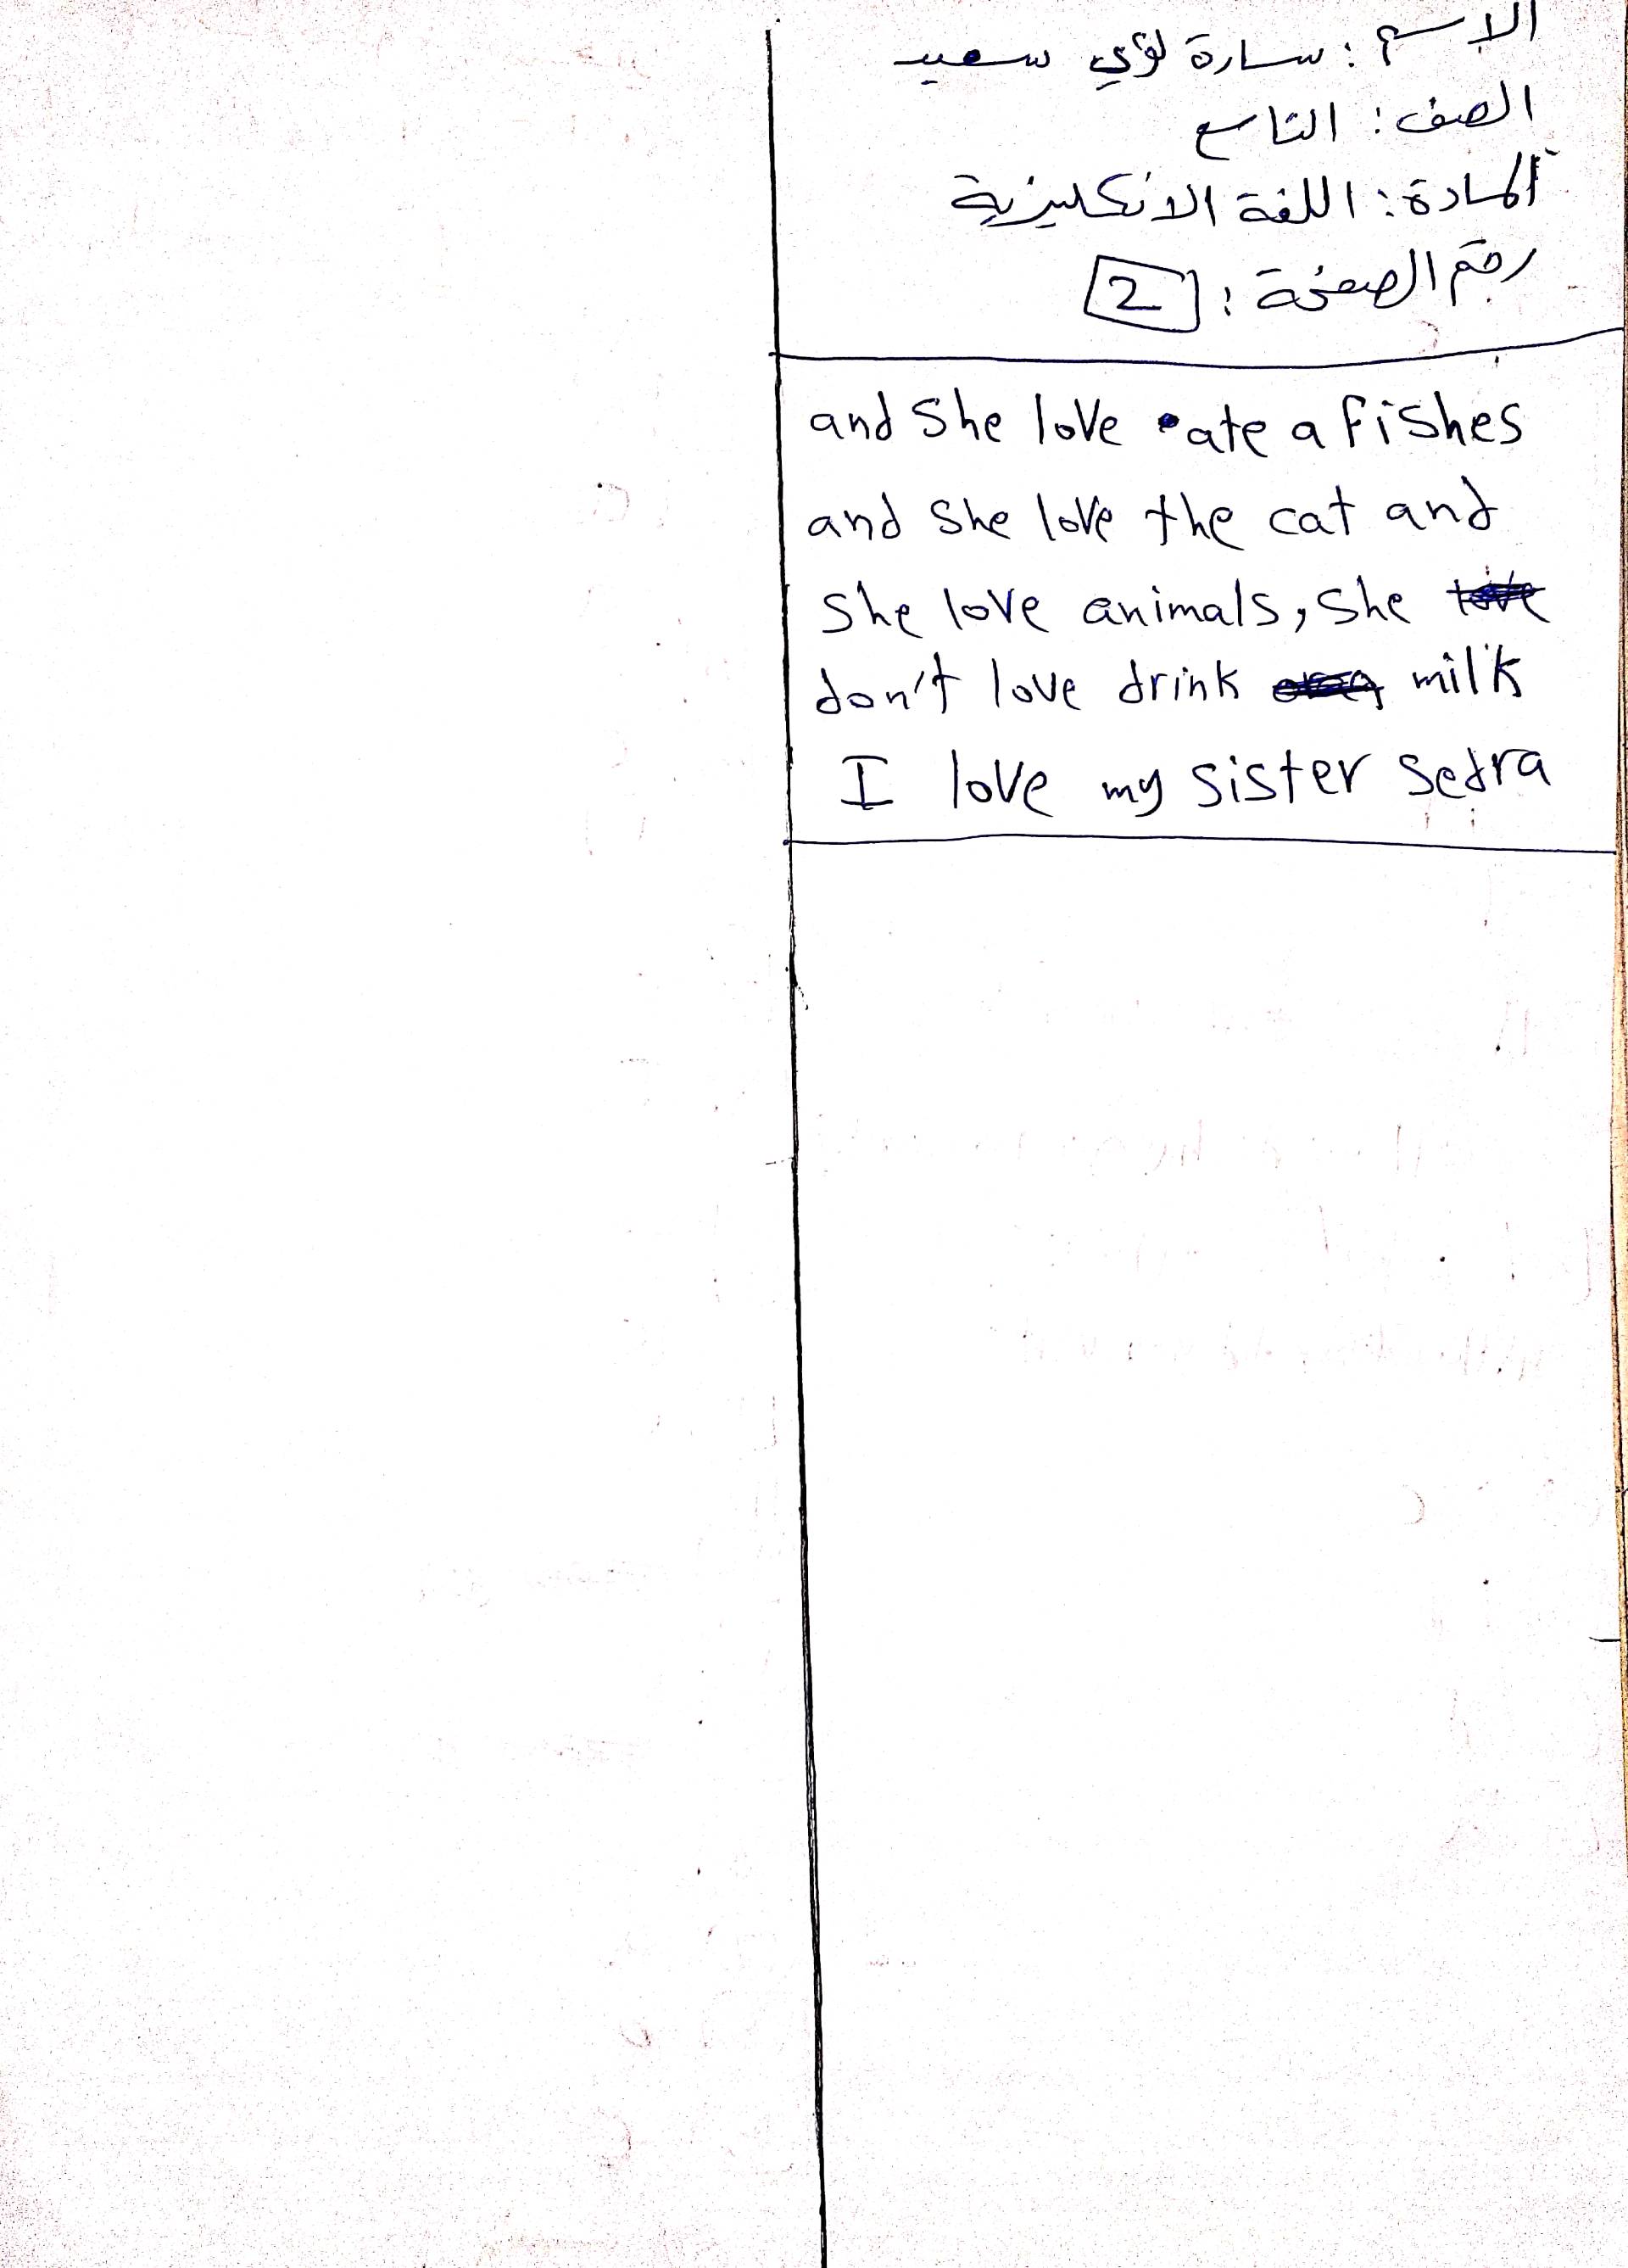 الاسم : سارة لؤي سعيد
الصف : التاسع
المادة : اللغة الانكليزية
رقم الصفحة : 2
and She love ate a fishes
and she love the cat and
She love animals, She
don't love drink milk
I love my sister Sedra